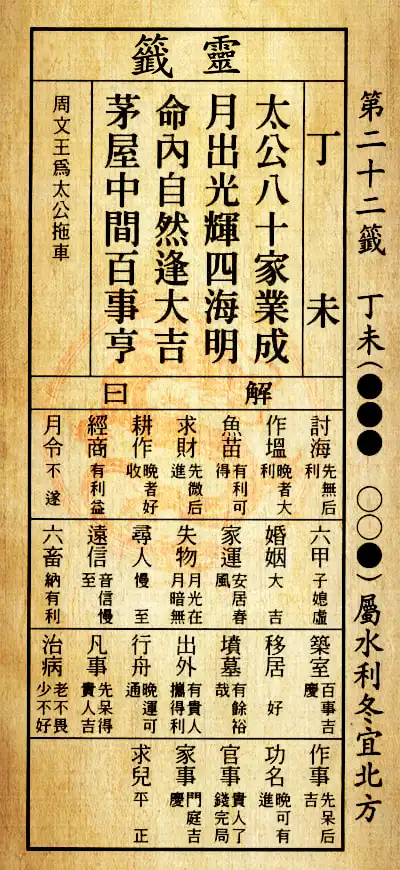 第二十二籤 丁未(●●● ○○●)屬水利冬宜北方
靈籤
丁未
太公八十家業成
月出光輝四海明
命內自然逢大吉
茅屋中間百事亨
周文王為太公拖車
解曰
討海 先無后利
作塭 晚者大利
魚苗 有利可得
求財 先微后進
耕作 晚者好收
經商 有利益
月令 不遂
六甲 子媳虛
婚姻 大吉
家運 安居春風
失物 月光在月暗無
尋人 慢至
遠信 音信慢至
六畜 納有利
築室 百事吉慶
移居 好
墳墓 有餘裕哉
出外 有貴人攜得利
行舟 晚運可通
凡事 先呆得貴人吉
治病 老不畏少不好
作事 先呆后吉
功名 晚可有進
官事 貴人了錢完局
家事 門庭吉慶
求兒 平正